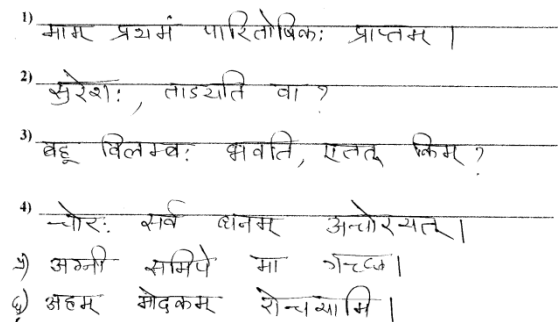 1) माम् प्रथमं पारितोषिकः प्राप्तम् ।
2) सुरेशः, ताडयति वा ?
3) बहू विलम्बः भवति, एतत् किम् ?
4) चोरः सर्व धनम् अचोरयत् ।
५) अग्नी समिपे मा गच्छ ।
६) अहम् मोदकम् रोचयामि ।